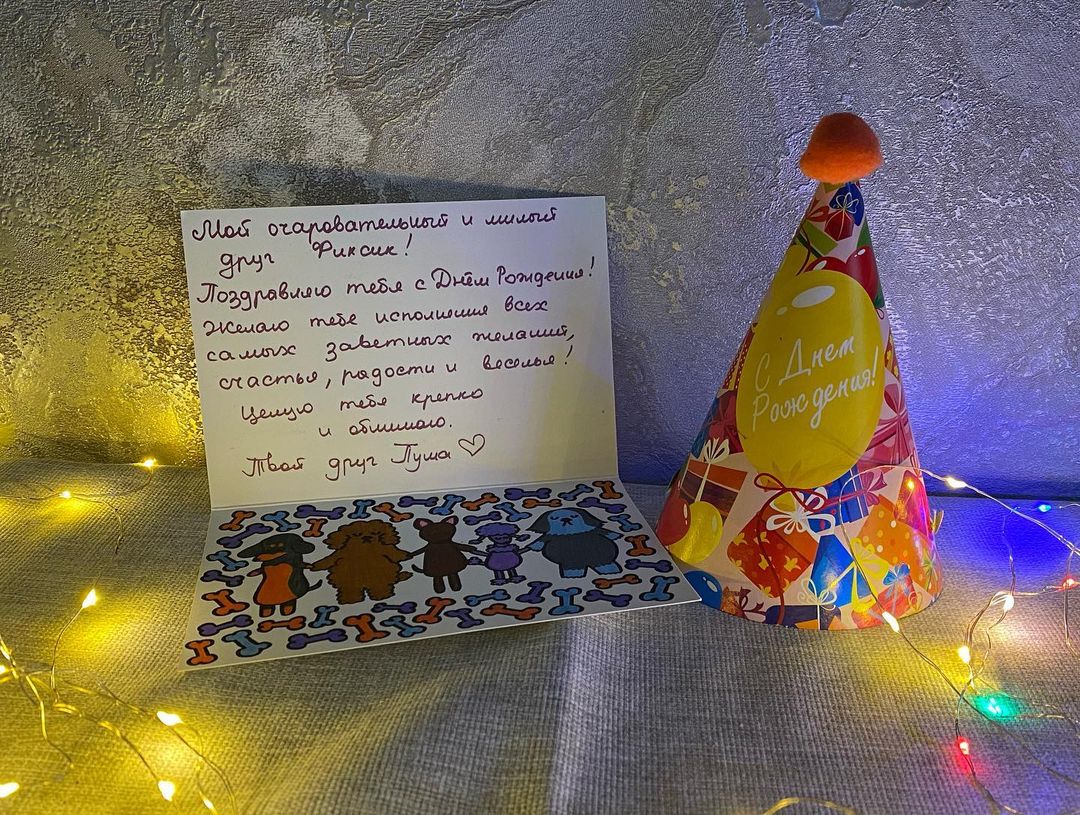 Мой очаровательный и милый
друг Фиксик!
Поздравляю тебя с Днём Рождения!
Желаю тебе исполнения всех
самых заветных желаний,
счастья, радости и веселья!
Целую тебя крепко
и обнимаю.
Твой друг Луша
С Днем
Рождения!